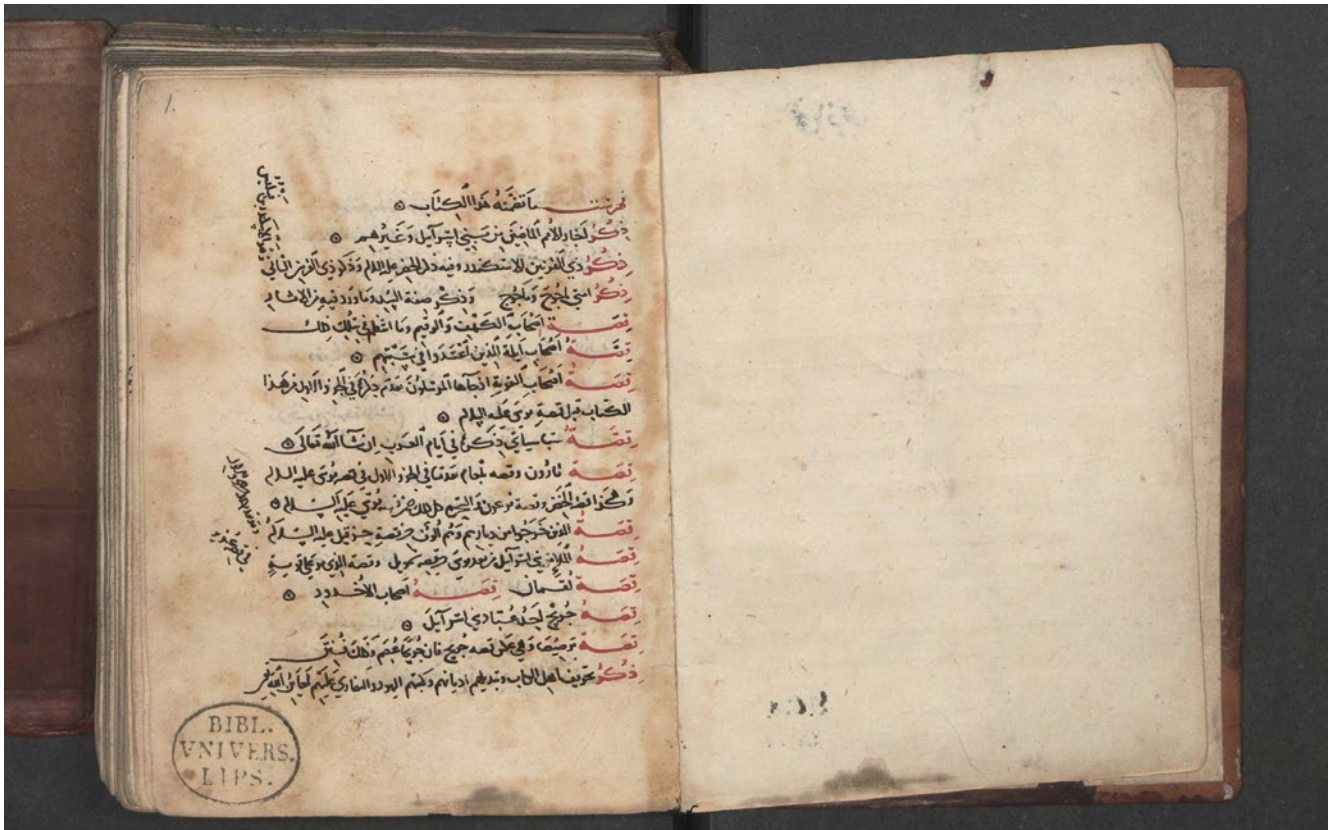 فهرست ما تضمنه هذا الكتاب
ذكر اخبار الامم الماضين من بني اسرآيل وغيرهم
ذكر ذي القرنين الاسكندر وفيه ذكر الخضر عليه السلام وذكر ذي القرنين الثاني
ذكر امتي ياجوج وماجوج وذكر صفة السد وما ورد فيه من
قصة اصحاب الكهف والرقيم وما في ذلك
قصة اصحاب ايلة الذين اعتدوا في سبتهم
قصة اصحاب القرية اذ جآها المرسلون تقدم ذكرها في الجزء الاول من هذا
الكتاب قبل قصة موسى عليه السلام
قصة سبا سياتي ذكرها في ايام العرب ان شآ الله تعالى
قصة قارون وقصه بلعام تقدمتا في الجزء الاول في قصه موسى عليه السلام
وهكذا قصة الخضر وقصة فرعون كل ذلك قصة موسى عليه السلام
قصة الذين خرجوا من ديارهم وهم الوف في قصة حزقيل عليه السلام
قصة الملا من بني اسرآيل من بعد موسى في قصه شمويل وقصه الذي مر على قرية
قصة لقمان قصة اصحاب الاخدود
قصة جريج احد عباد بني اسرآيل
قصة برصيصا وهي عكس قصه جريج فان جريجا عصم وذلك فتن
ذكر تحريف اهل الكتاب وتبديلهم اديانهم وكتبهم اليهود والنصارى عليهم لعاين الله
1.
BIBL.
VNIVERS.
LIPS.